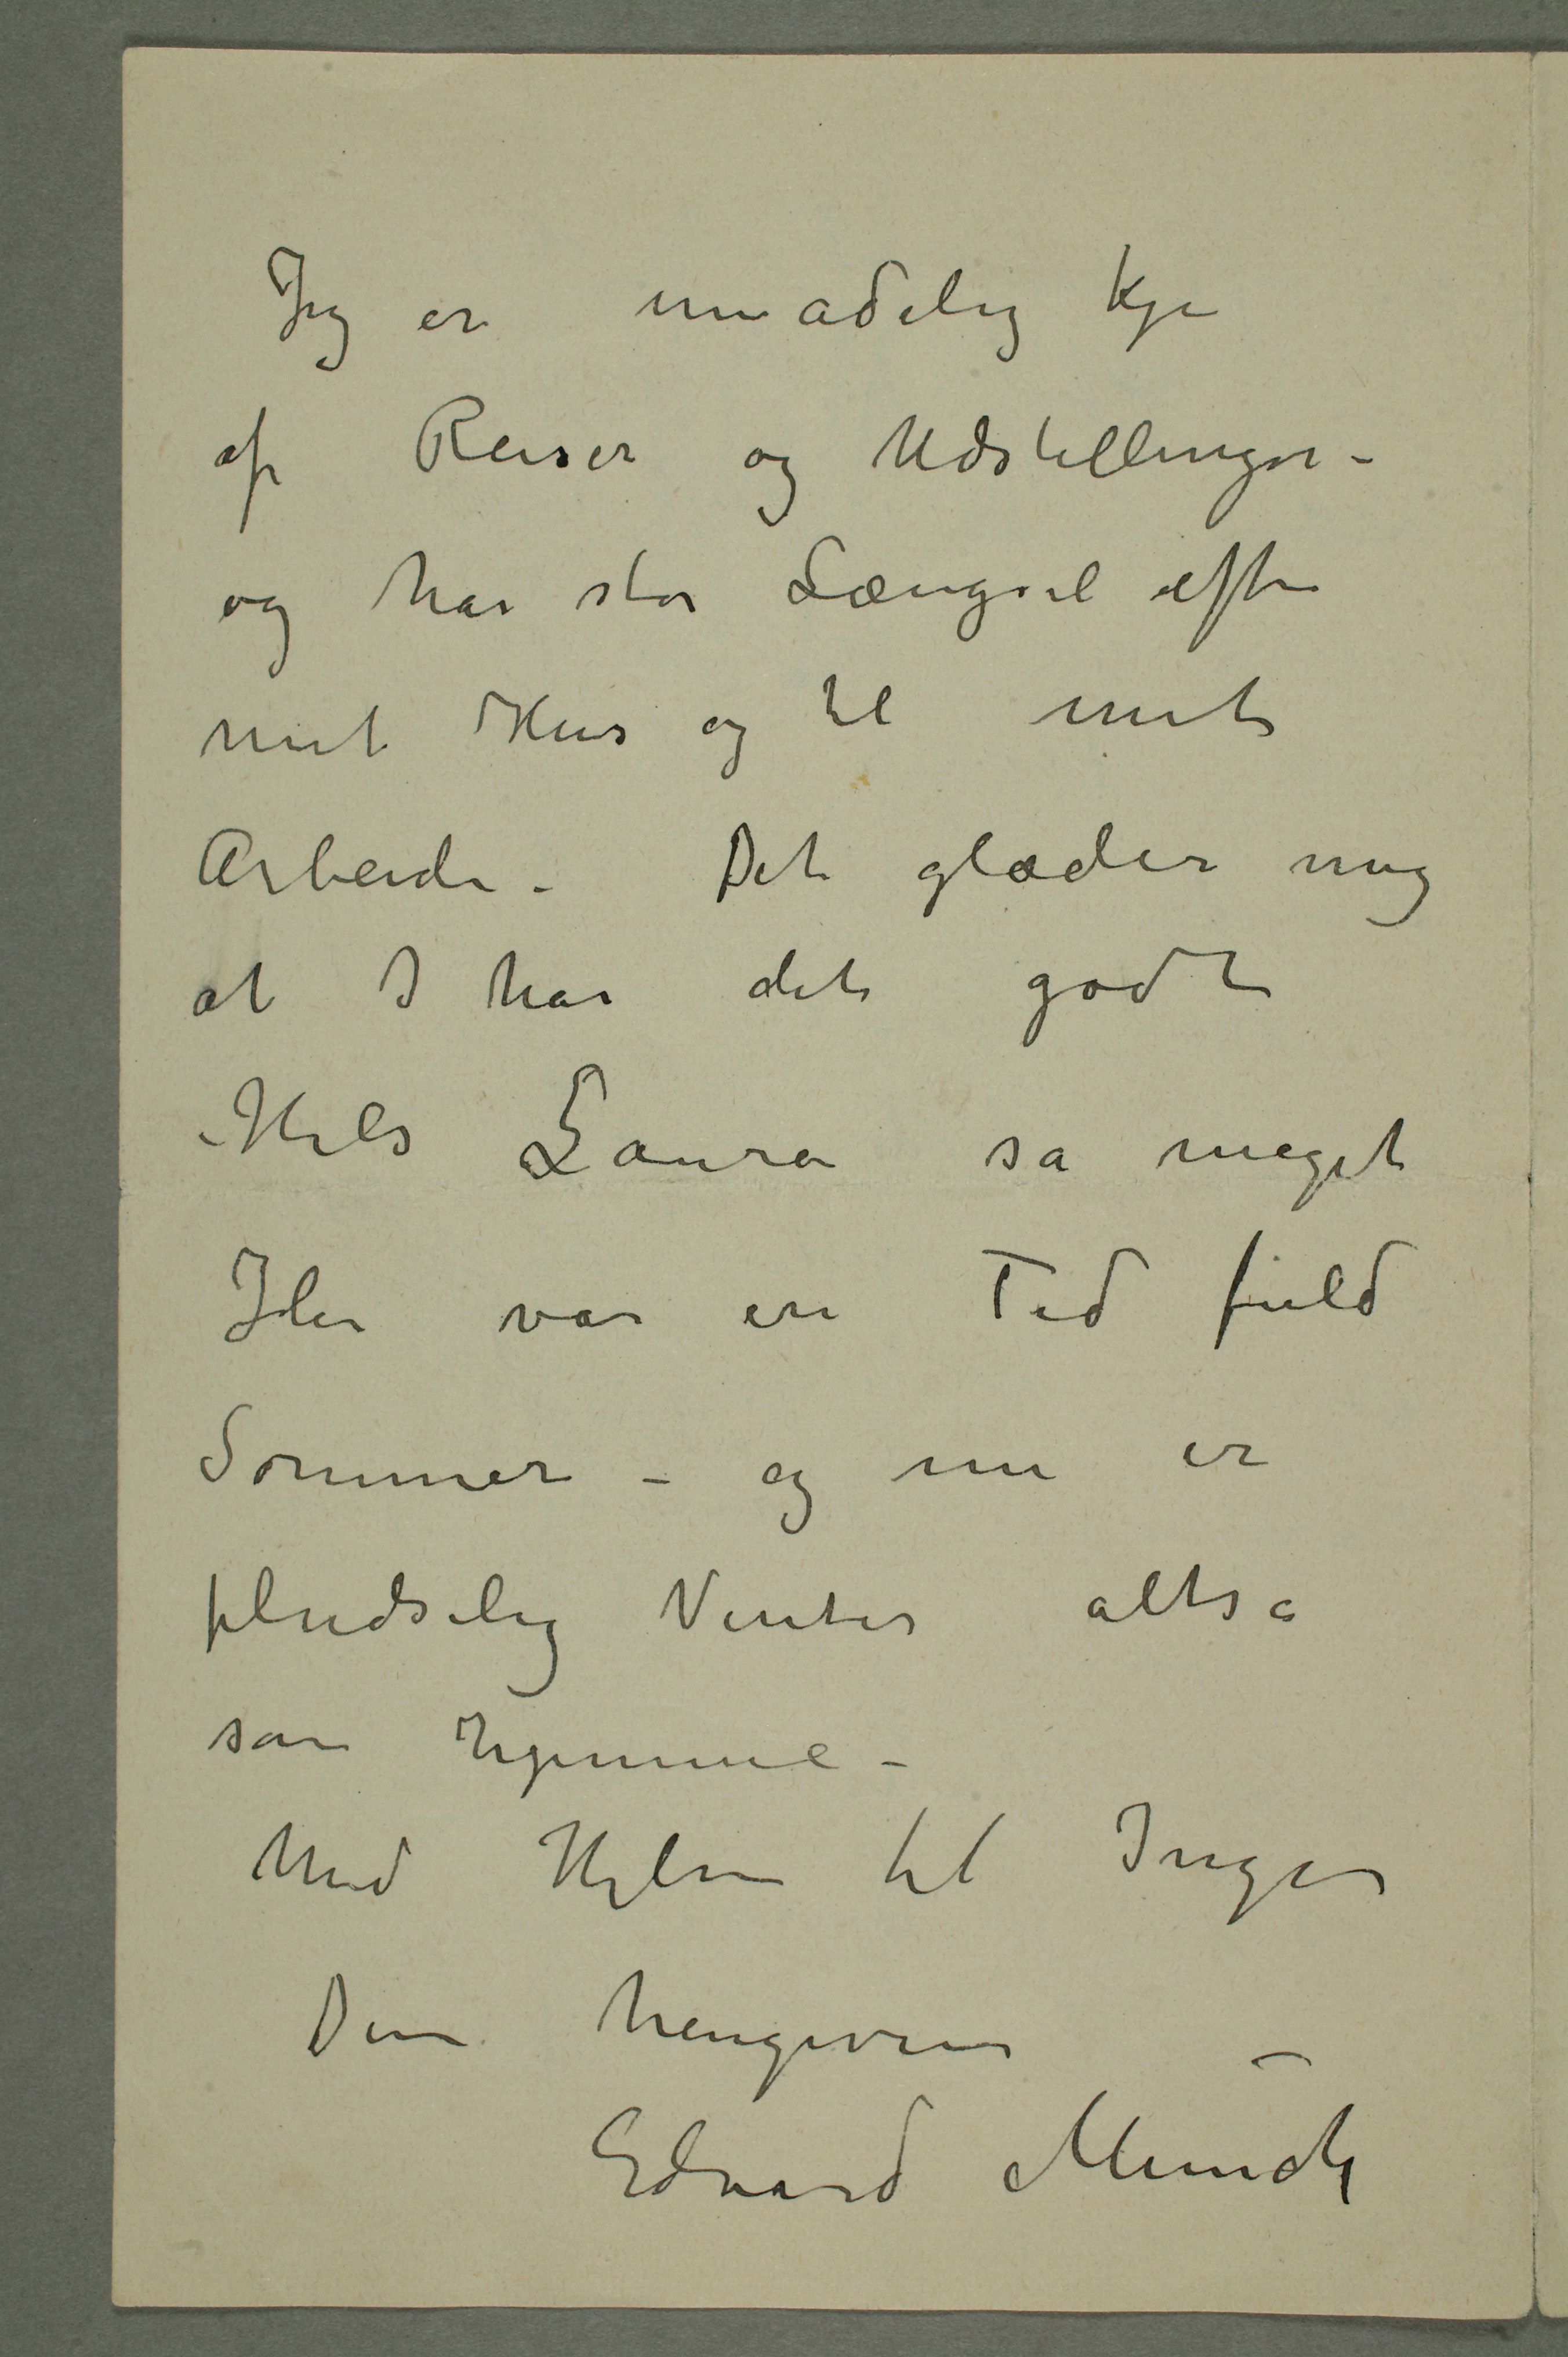 Jeg er umadelig kje
af Reiser og Udstillinger –
og har stor Længsel efter
mit Hus og til mit
Arbeide – Det glæder mig
at I har det godt
– Hils Laura sa meget
Her var en Tid fuld
Sommer – og nu er
pludselig Vinter altsa
som hjemme –
Med Hilsen til Inger
Din hengivne
Edvard Munch